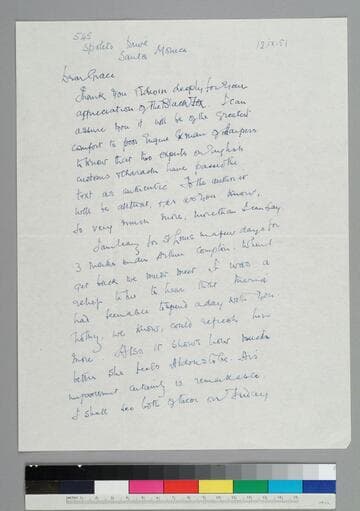 545
Spoleto Drive
Santa Monica
12.IX.51
Dear Grace
Thank you deeply for your
appreciation of the Dark Fox. I can
assure you it will be of the greatest
comfort to poor Eugene Exman of Harpers
to know that two experts on English
customs & character have passed the
text as authentic. To the author it
will be all that, &, as you know,
so very much more, more than I can say
I am leaving for St Louis in a few days for
3 weeks under Arthur Compton. When I
get back we must meet. It was a
help to me to hear that Maria
had been able to spend a day with you
Nothing, we know, could refresh her
more. Also it shows how much
better she feels Aldous to be. His
improvement certainly is remarkable.
I shall see both of them on Friday